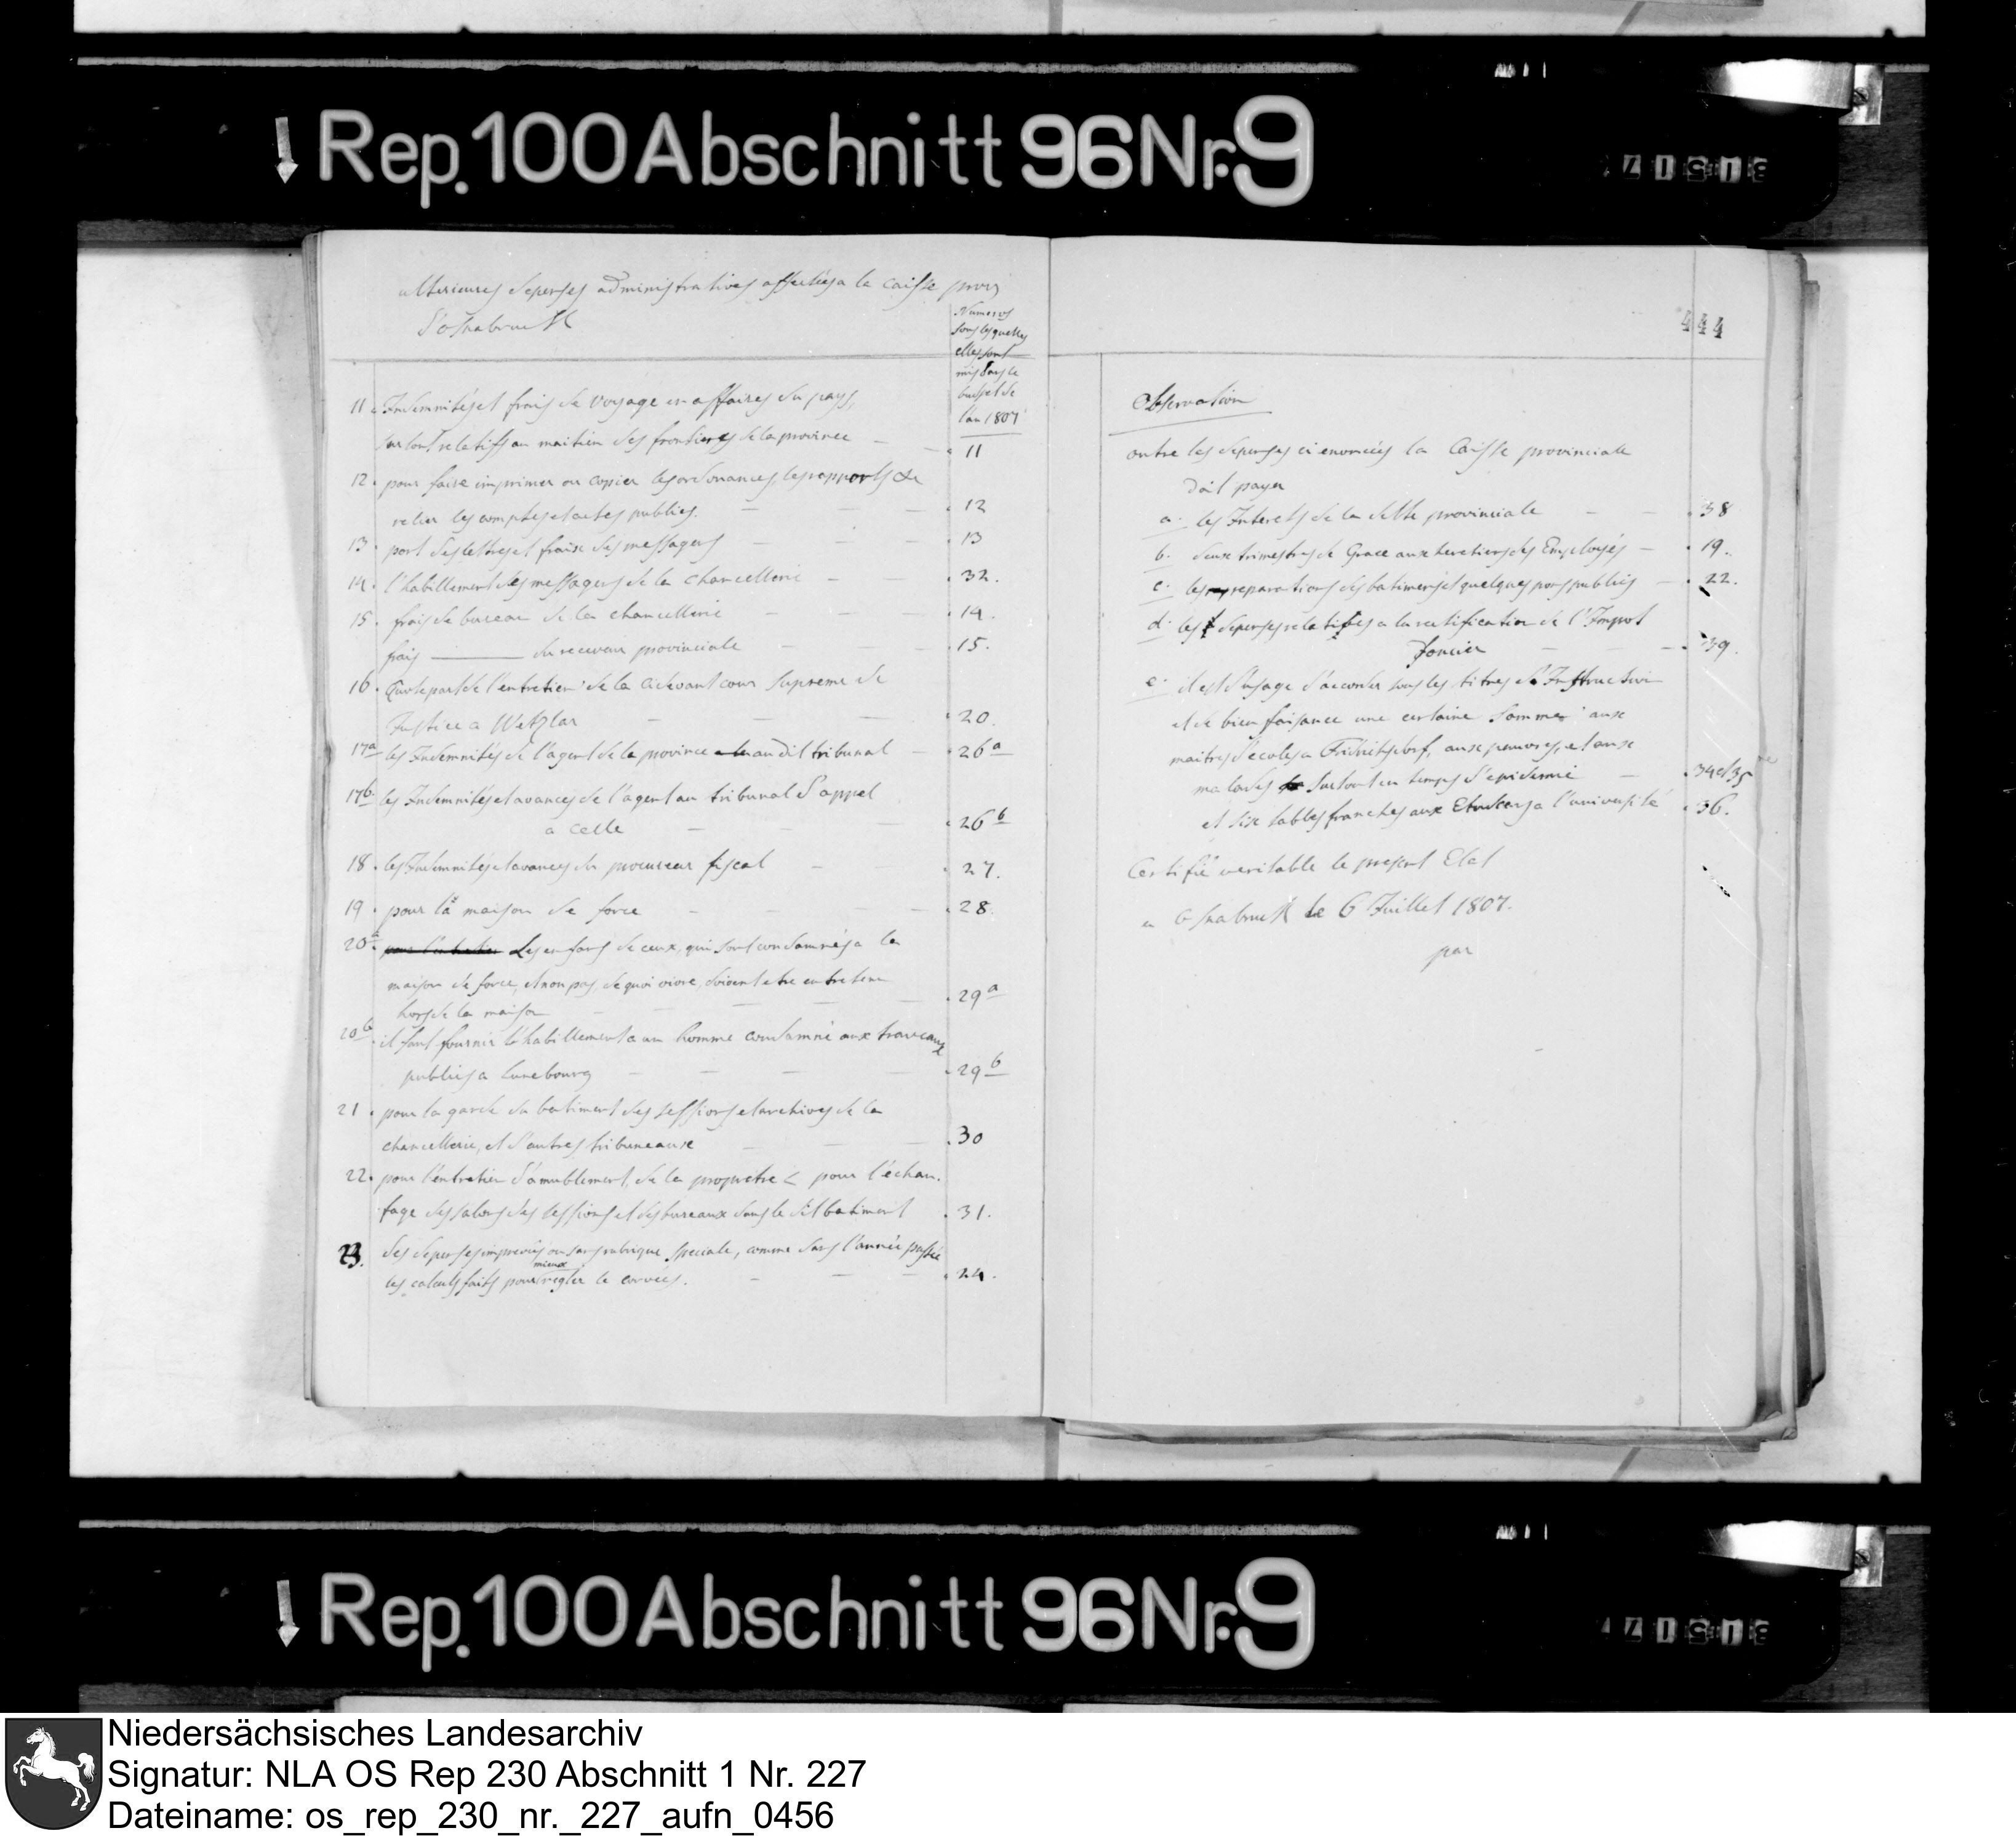 Rep. 100 Abschnitt 96 Nr. 9
ulterieures depenses administratives affectées a la caisse prov
d'osnabruck
Numeros
sous lesquelles
elles sont
mis dans le
budjet de
l'an 1807
11. Indemnités et frais de voyage en affaires du pays,
surtout relatifs au maitien des frontieres de la province — 11
12. pour faire imprimer ou copier les ordonances, les rapports &
relier les comptes et actes publics. — — — 12
13. port des lettres et fraix des messagers — — — 13
14. l'habillement des messagers de la chancellerie — 32.
15. frais de bureau de la chancellerie — — — 14.
frais ——— du receveur provinciale — — — 15.
16. Quotepart de l'entretien de la cidevant cour Supreme de
Justice a Wetzlar — — — 20.
17a les Indemnités de l'agent de la province au dit tribunal — 26a
17b. les Indemnités et avances de l'agent au tribunal d'appel
a Celle — — — 26b
18. les Indemnités et avances du procureur fiscal — 27.
19. pour la maison de force — — — 28.
20a. pour l'entretien Les enfans de ceux, qui sont condamnés a la
maison de force, et non pas de quoi vivre, doivent etre entretenu
hors de la maison — — — 29a
20b. il faut fournir l'habillement a un homme condamné aux traveaux
publics a Lunebourg — — — 29b
21. pour la garde du batiment des sessions et archives de la
chancellerie, et d'autres tribuneaux — — — 30
22. pour l'entretien d'amublement, de la propretre & pour l'échau.
fage des salons des sessions et des bureaux dans le dit batiment . 31.
23. des depenses imprevües ou sans rubrique speciale, comme dans l'année passée
mieux
les calculs faits pour regler le corvées. — — — 24.
444
Observation
outre les depenses ci enoncées la Caisse provinciale
doit payer
a. les Interets de la dette provinciale — — 38
b. deux trimestres de Grace aux heretiers des Employés — 19.
c. les reparations des batimens et quelques pons publics — 22.
d. les depenses relatives a la rectification de l'Impot
foncier — — — 39.
e. il est d'usage d'accorder sous les titres d'Instruction
et de bien faisance une certaine somme aux
maitres d'ecoles a Fridrichsdorf, aux pauvres, et aux
malades surtout en temps d'epidemie — 34 et 35
et six tables franches aux Etudians a l'université . 36.
Certifié veritable le present Etat
a Osnabruck le 6 Juillet 1807.
par
Rep. 100 Abschnitt 96 Nr. 9
Niedersächsisches Landesarchiv
Signatur: NLA OS Rep 230 Abschnitt 1 Nr. 227
Dateiname: os_rep_230_nr._227_aufn_0456